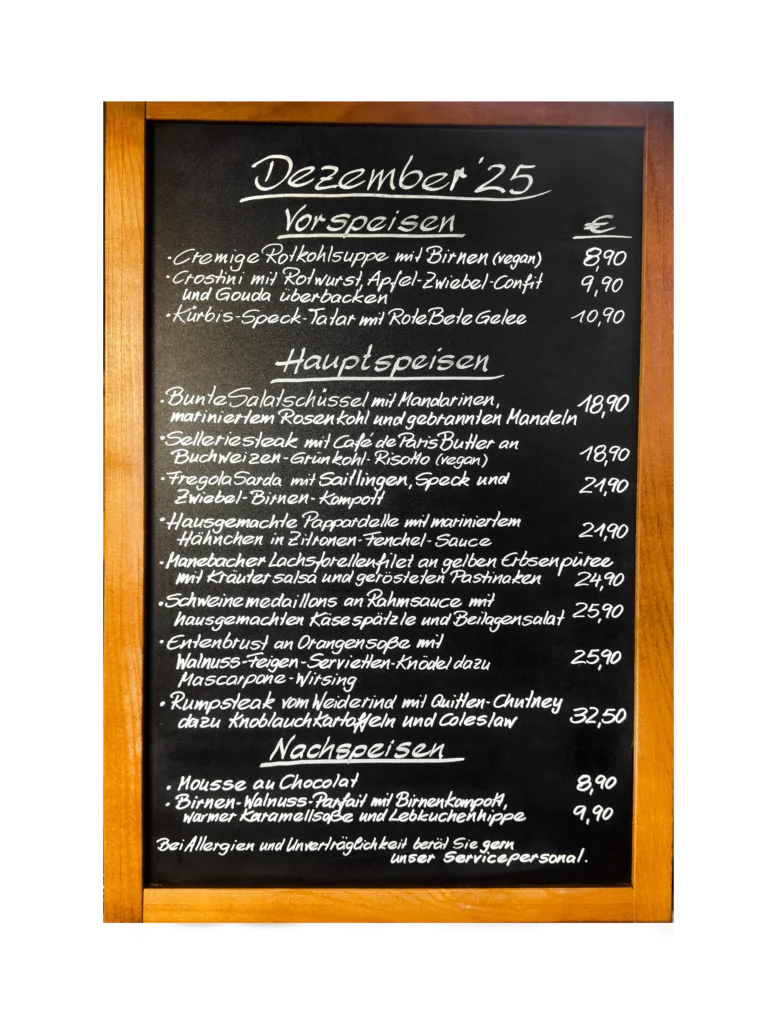 Dezember '25
Vorspeisen €
· Cremige Rotkohlsuppe mit Birnen (vegan) 8,90
· Crostini mit Rotwurst, Apfel-Zwiebel-Confit 9,90
und Gouda überbacken
· Kürbis-Speck-Tatar mit Rote Bete Gelee 10,90
Hauptspeisen
· Bunte Salatschüssel mit Mandarinen, 18,90
mariniertem Rosenkohl und gebrannten Mandeln
· Selleriesteak mit Café de Paris Butter an
Buchweizen-Grünkohl-Risotto (vegan) 18,90
· Fregola Sarda mit Saitlingen, Speck und 21,90
Zwiebel-Birnen-Kompott
· Hausgemachte Pappardelle mit mariniertem 21,90
Hähnchen in Zitronen-Fenchel-Sauce
· Manebacher Lachsforellenfilet an gelben Erbsenpüree
mit Kräutersalsa und gerösteten Pastinaken 24,90
· Schweinemedaillons an Rahmsauce mit 25,90
hausgemachten Käsespätzle und Beilagensalat
· Entenbrust an Orangensoße mit
Walnuss-Feigen-Servietten-Knödel dazu 25,90
Mascarpone-Wirsing
· Rumpsteak vom Weiderind mit Quitten-Chutney
dazu Knoblauchkartoffeln und Coleslaw 32,50
Nachspeisen
· Mousse au Chocolat 8,90
· Birnen-Walnuss-Parfait mit Birnenkompott,
warmer Karamellsoße und Lebkuchenhippe 9,90
Bei Allergien und Unverträglichkeit berät Sie gern
unser Servicepersonal.